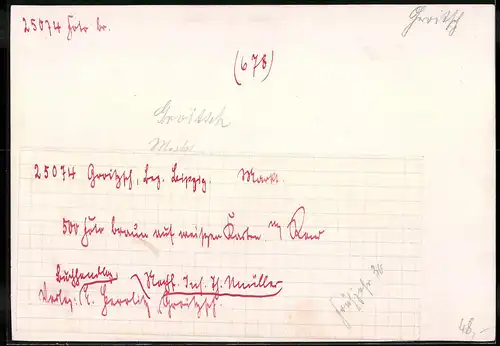 25074 Foto br.
Groitzsch
(678)
Groitzsch
Markt
25074 Groitzsch, Bez. Leipzig. Markt.
500 Foto braun auf weissen Karten
Buchhandlg Nachf. Inh. Th. Umüller
Verlag: Groitzsch.
48,-